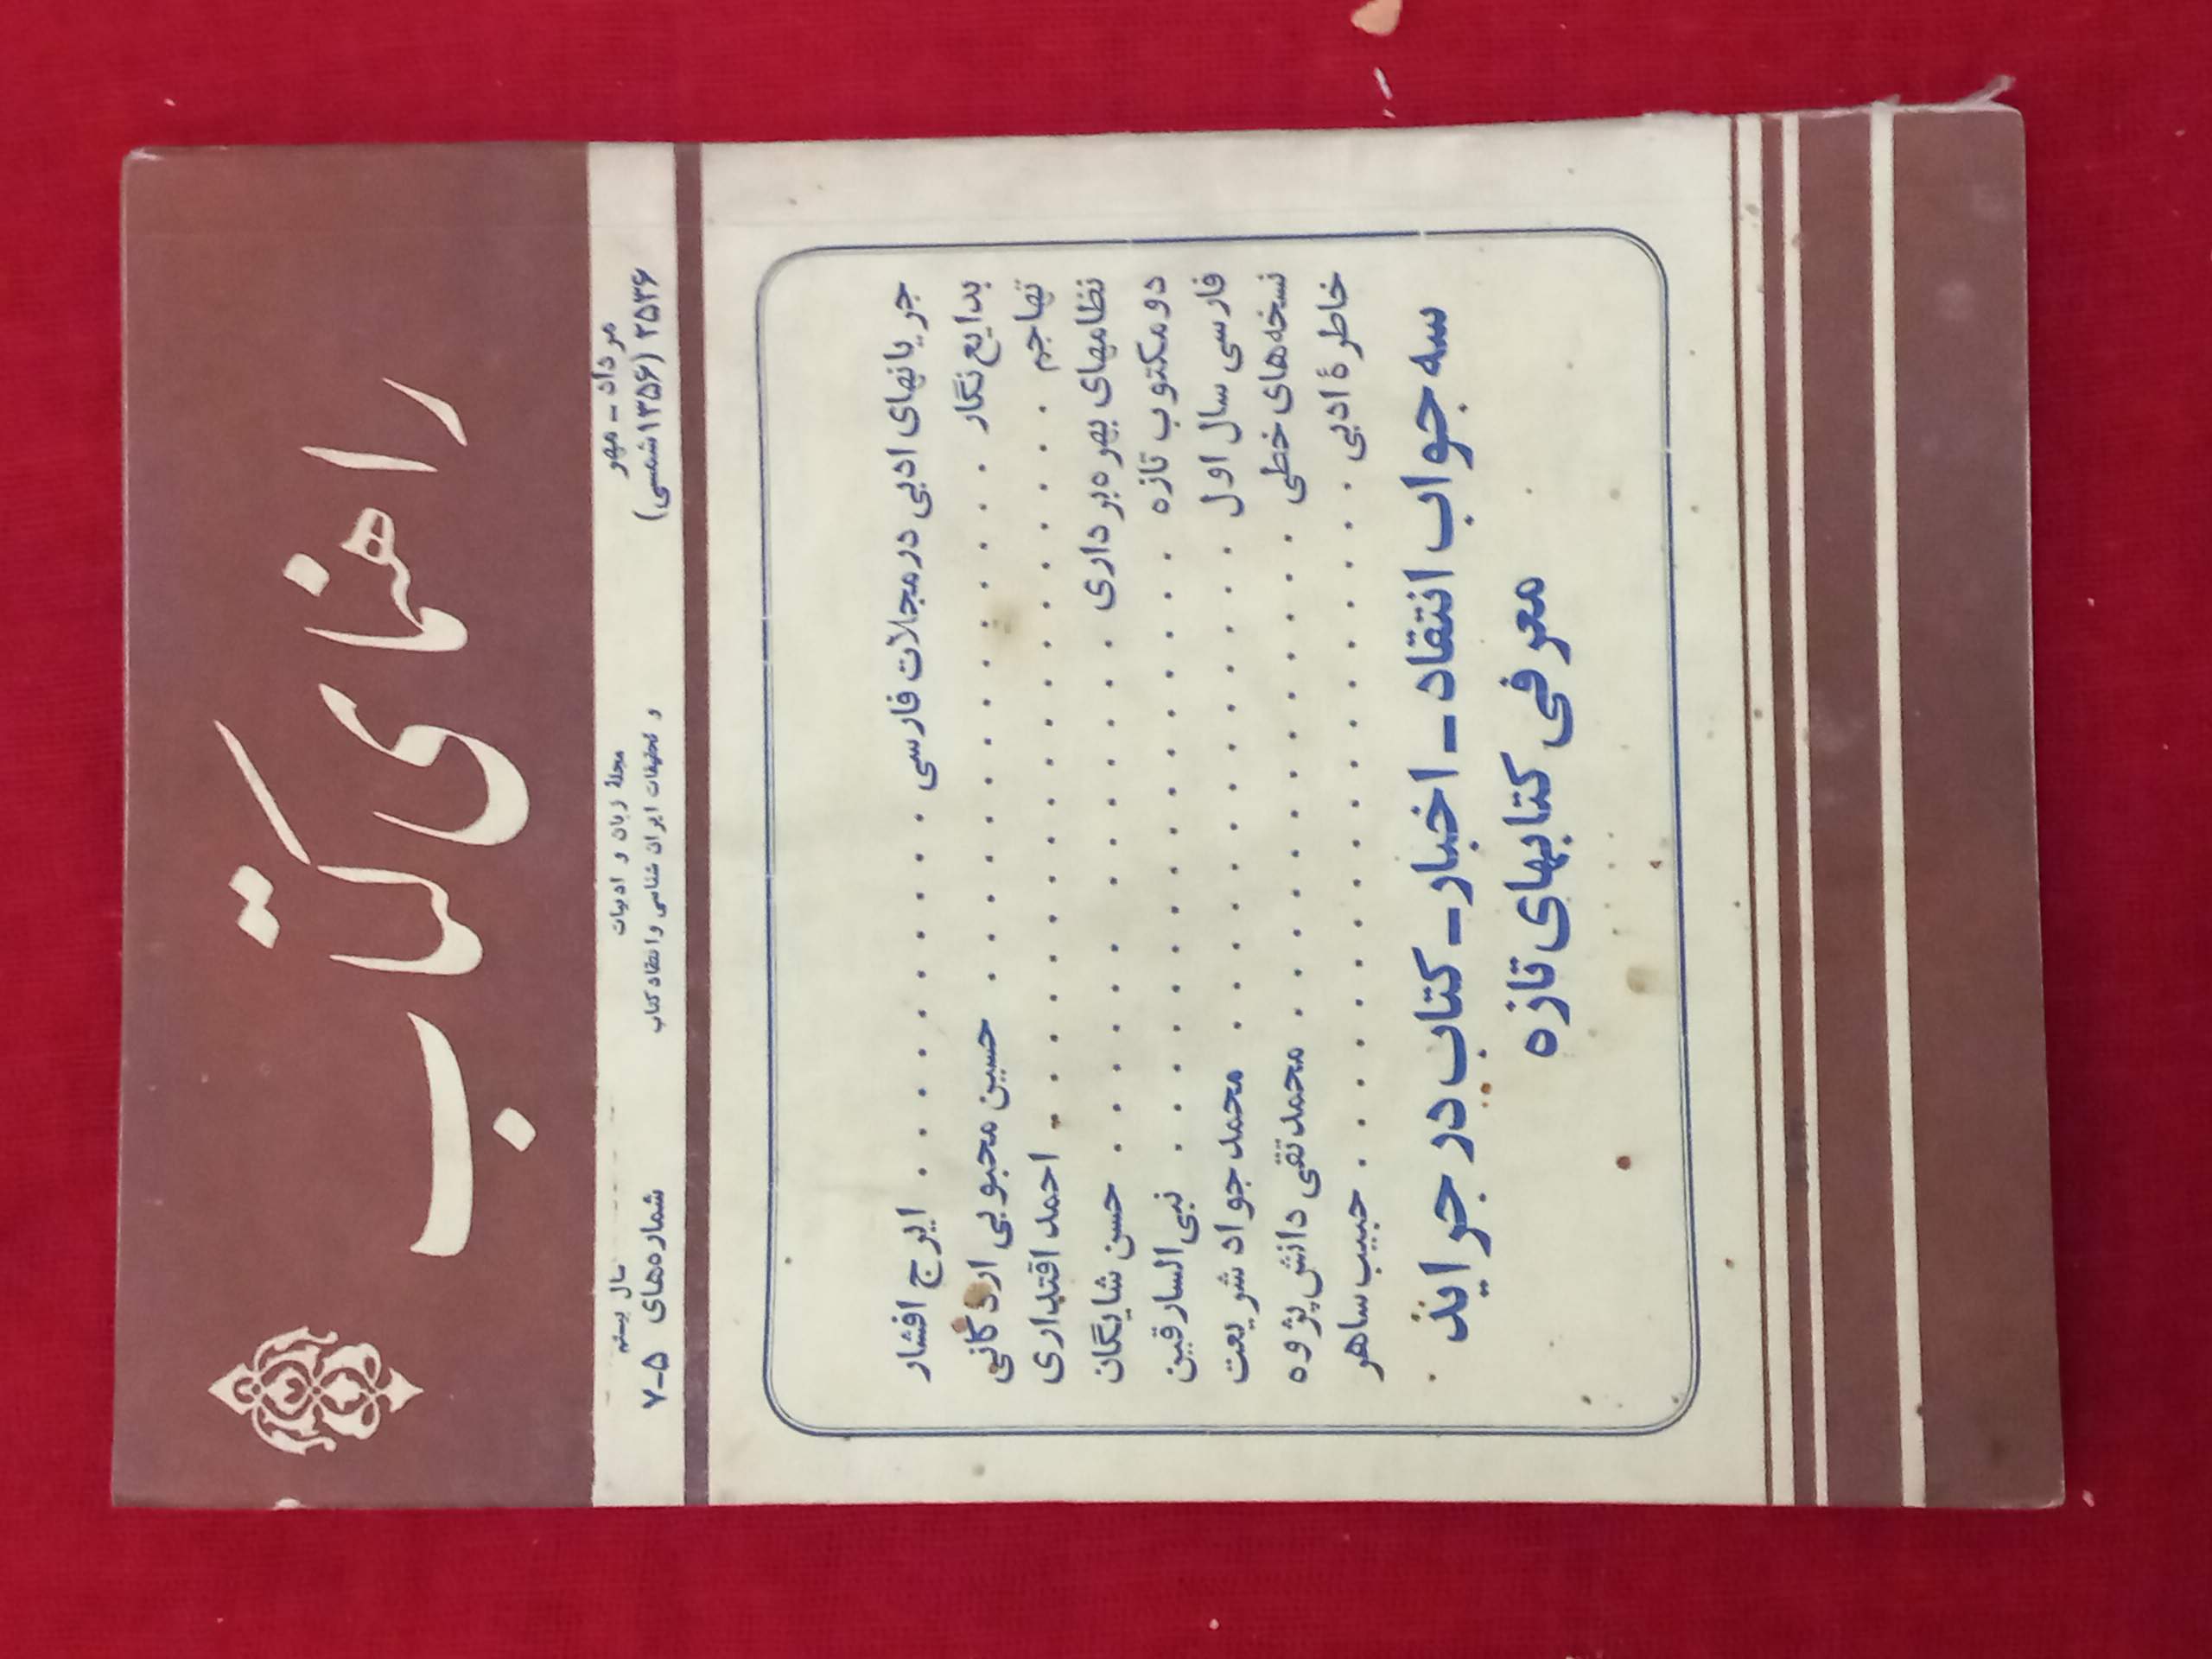 راهنمای کتاب
مرداد - مهر
۲۵۳۶ (۱۳۵۶ شمسی)
مجلهٔ زبان و ادبیات
و تحقیقات ایران شناسی و انتقاد کتاب
سال بیستم
شماره‌های ۵-۷
جریانهای ادبی در مجلات فارسی . . . . . . . . . ایرج افشار
بدایع نگار . . . . . . . . . حسین محبوبی اردکانی
تهاجم . . . . . . . . . احمد اقتداری
نظامهای بهره‌برداری . . . . . . . . . حسن شایگان
دو مکتوب تازه . . . . . . . . . نبی السارقین
فارسی سال اول . . . . . . . . . محمد جواد شریعت
نسخه‌های خطی . . . . . . . . . محمد تقی دانش پژوه
خاطرهٔ ادبی . . . . . . . . . حبیب ساهر
سه جواب انتقاد - اخبار - کتاب در جراید
معرفی کتابهای تازه